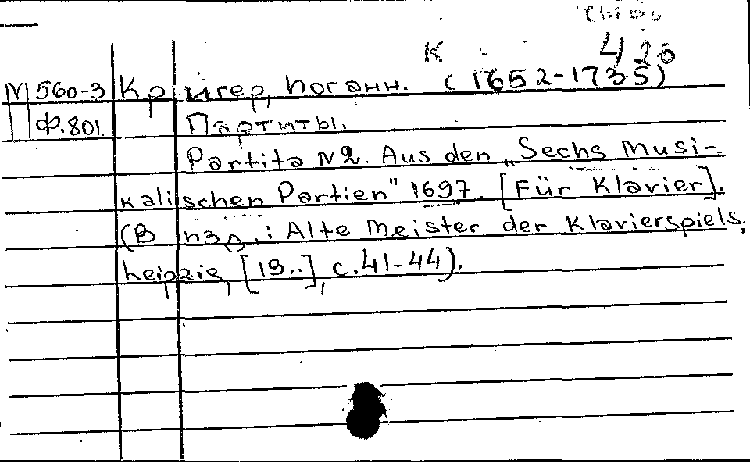 К 420
М 560-3 Кригер, Иоганн. (1652-1735)
Ф.801 Партиты.
Partita N2. Aus den „Sechs Musi-
kalischen Partien" 1697. [Für Klavier].
(В изд.: Alte Meister der Klavierspiels,
Leipzig, [19..], с.41-44).